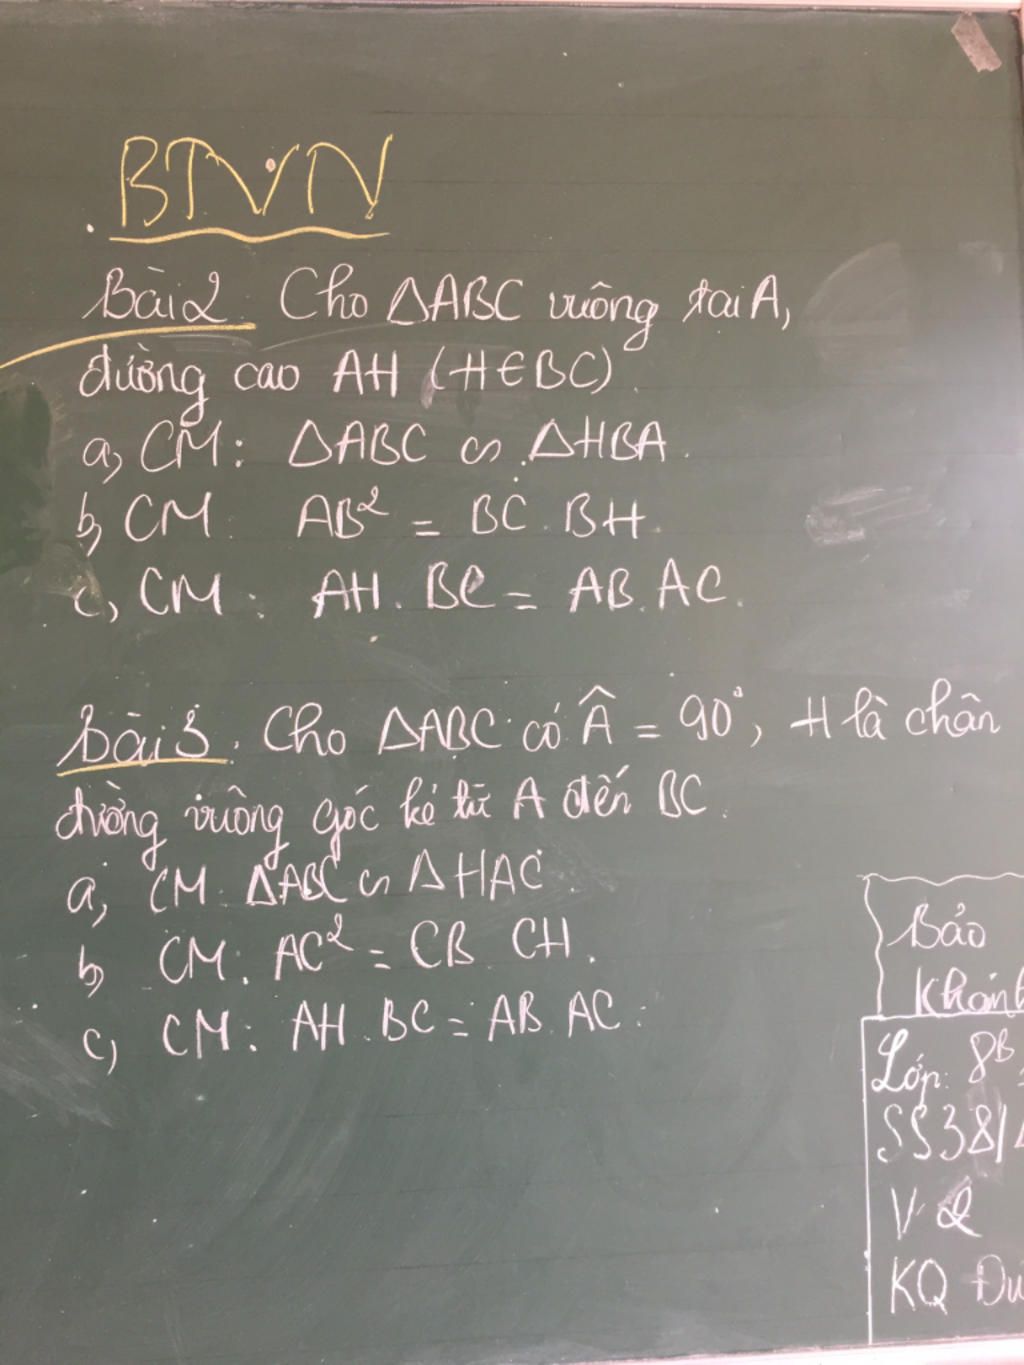 BTVN
Bài 2: Cho ΔABC vuông tại A,
đường cao AH (H∈BC).
a, CM: ΔABC ∽ ΔHBA.
b, CM: AB² = BC. BH
c, CM: AH. BC = AB. AC.
Bài 3: Cho ΔABC có Â = 90°, H là chân
đường vuông góc kẻ từ A đến BC.
a, CM ΔABC ∽ ΔHAC.
b, CM: AC² = CB CH.
c, CM: AH. BC = AB. AC.
Bảo
Khánh
Lớp: 8B
SS38/
V 2
KQ